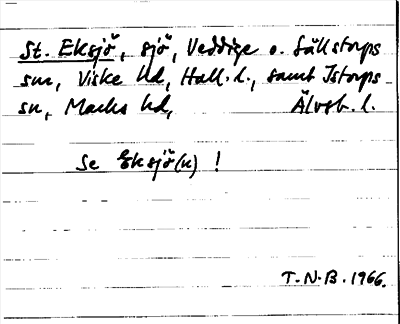 St. Eksjö, sjö, Veddige o. Sällstorps
snr, Viske hd, Hall. l., samt Istorps
sn, Marks hd, Älvsb. l.
Se Eksjö(n) !
T.N.B. 1966.